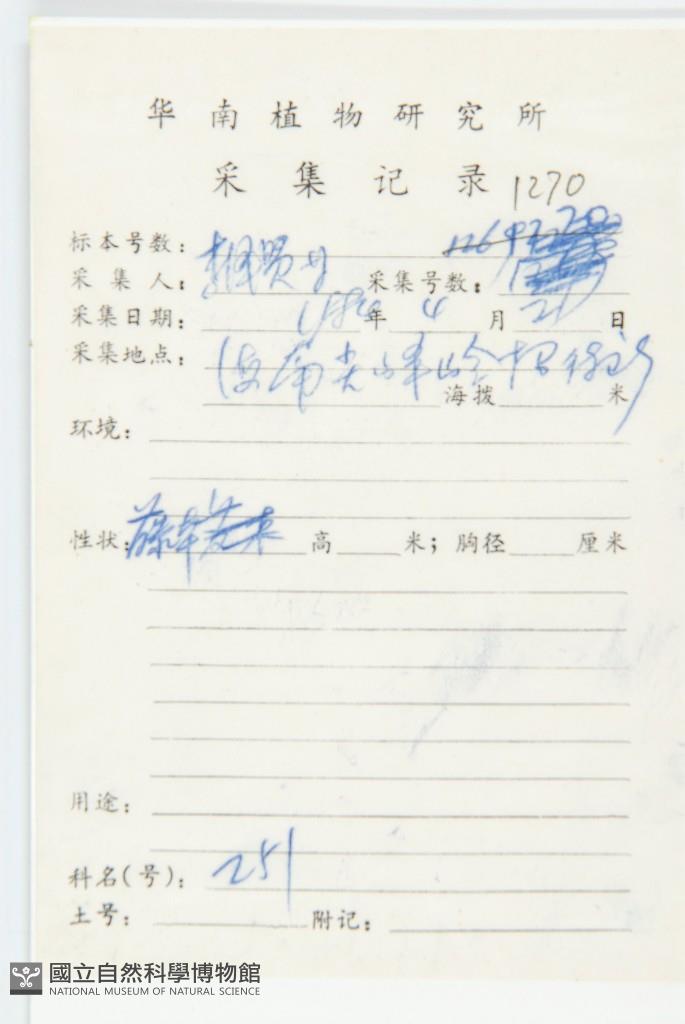 华南植物研究所
采集记录 1270
标本号数：
采集人： 采集号数：
采集日期： 1984年 4 月 21 日
采集地点： 海南尖峰岭
海拨 米
环境：
性状： 藤本 高 米；胸径 厘米
用途：
科名(号)： 251
土号： 附记：
國立自然科學博物館
NATIONAL MUSEUM OF NATURAL SCIENCE